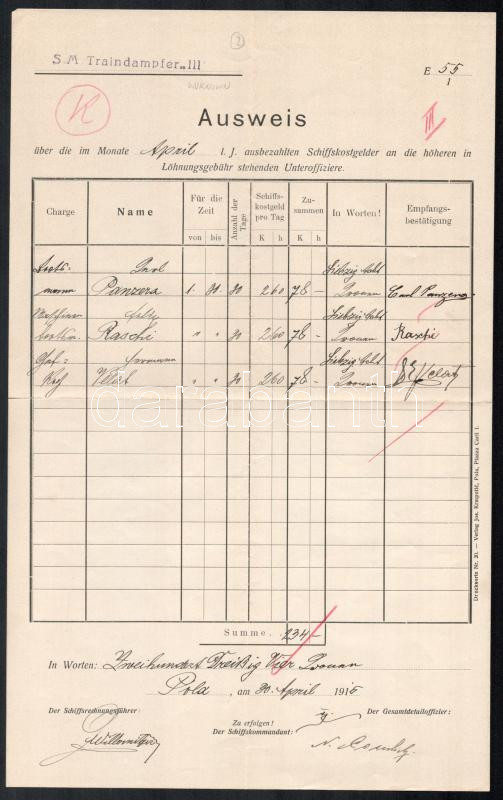 S. M. Traindampfer „III"
2
UNKNOWN
E 55
1
K
III
Ausweis
über die im Monate April l. J. ausbezahlten Schiffskostgelder an die höheren in
Löhnungsgebühr stehenden Unteroffiziere.
Charge Name Für die Zeit Anzahl der Tage Schiffskostgeld pro Tag Zusammen In Worten! Empfangsbestätigung
von bis K h K h
Boots- Karl Siebzig Acht
mann Panzera 1. 30. 30 2 60 78 – Kronen Carl Panzera
Siebzig Acht
Raschi " " 30 2 60 78 – Kronen Raschi
Hermann Siebzig Acht
" " 30 2 60 78 – Kronen
darabanth
Summe 234 –
In Worten: Zweihundert Dreißig Vier Kronen
Pola, am 30. April 1915
Der Schiffsrechnungsführer: Zu erfolgen! Der Gesamtdetailoffizier:
Der Schiffskommandant:
Drucksorte Nr. 20. — Verlag Jos. Krmpotić, Pola, Piazza Carli 1.